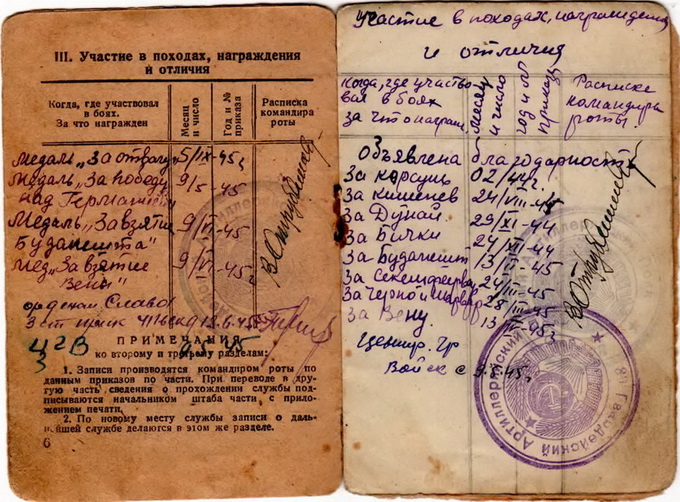 III. Участие в походах, награждения
и отличия
Когда, где участвовал
в боях.
За что награжден
Месяц
и число
Год и №
приказа
Расписка
командира
роты
Медаль „За отвагу“ 5/IX-45г
Медаль „За победу 9/5 -45
над Германией
Медаль „За взятие 9/VI -45
Будапешта"
Мед „За взятие 9/VI -45
Вены"
орденом Славы
3 ст
ПРИМЕЧАНИЯ
ко второму и третьему разделам:
1. Записи производятся командиром роты по
данным приказов по части. При переводе в дру-
гую часть сведения о прохождении службы под-
писываются начальником штаба части с прило-
жением печати.
2. По новому месту службы записи о даль-
нейшей службе делаются в этом же разделе.
6
Участие в походах, награждения
и отличия
Когда, где участво-
вал в боях
за что награж.
Месяц
и число
год и №
приказа
Расписка
командира
роты.
Объявлена благодарность
За Корсунь 02/44г.
За Кишенев 24/VIII-44
За Дунай 29/XI-44
За Бички 24/XII-44
За Будапешт 13/II-45
За 24/III-45
За 28/III-45
За Вену. 13/IV-45г
Центр. Гр
Войск с
Гвардейский Артиллерийский